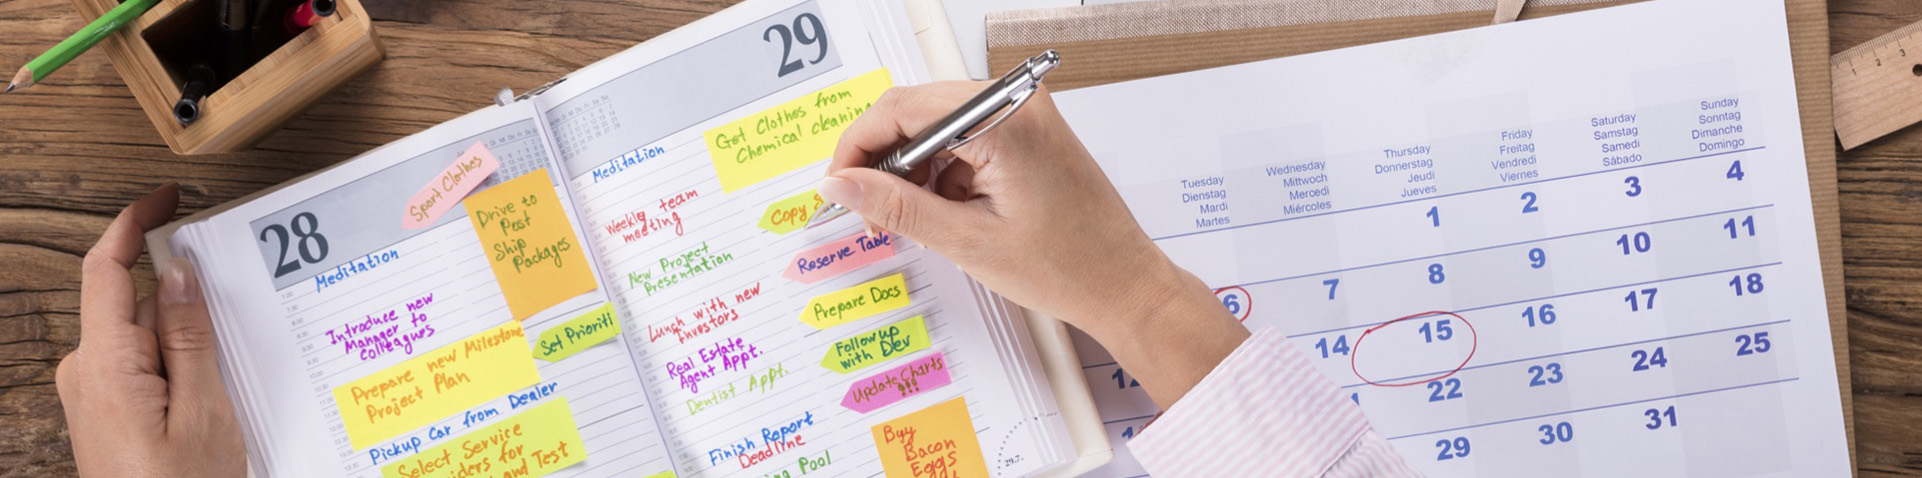 28
Meditation
Sport Clothes
Drive to
Post
Ship
Packages
Introduce new
Manager to
colleagues
Set Prioriti
Prepare new Milestone
Project Plan
Pickup Car from Dealer
Select Service
iders for
and Test
29
Meditation
Get Clothes from
Chemical cleaning
Weekly team
meeting
Copy
New Project
Presentation
Reserve Table
Lunch with new
Investors
Prepare Docs
Real Estate
Agent Appt.
Follow up
with Dev
Dentist Appt.
Update Charts
!!!
Finish Report
Deadline
ng Pool
Buy
Bacon
Eggs
29.7.
Tuesday
Dienstag
Mardi
Martes
Wednesday
Mittwoch
Mercedi
Miércoles
Thursday
Donnerstag
Jeudi
Jueves
Friday
Freitag
Vendredi
Viernes
Saturday
Samstag
Samedi
Sábado
Sunday
Sonntag
Dimanche
Domingo
1 2 3 4
6 7 8 9 10 11
12 14 15 16 17 18
22 23 24 25
29 30 31
1 2 3